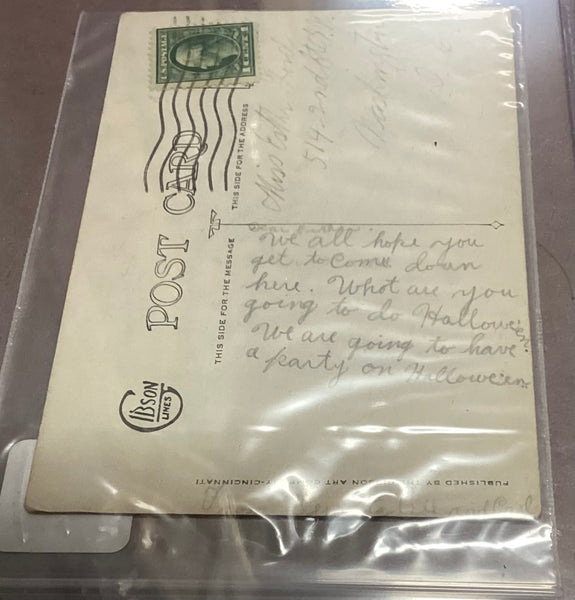 U.S. POSTAGE
1 CENT 1
POST CARD
THIS SIDE FOR THE MESSAGE
THIS SIDE FOR THE ADDRESS
Miss
514 2nd St
Washington
Dear
We all hope you
get to come down
here. What are you
going to do Halloween?
We are going to have
a party on Halloween.
GIBSON
LINES
PUBLISHED BY THE GIBSON ART COMPANY-CINCINNATI
and